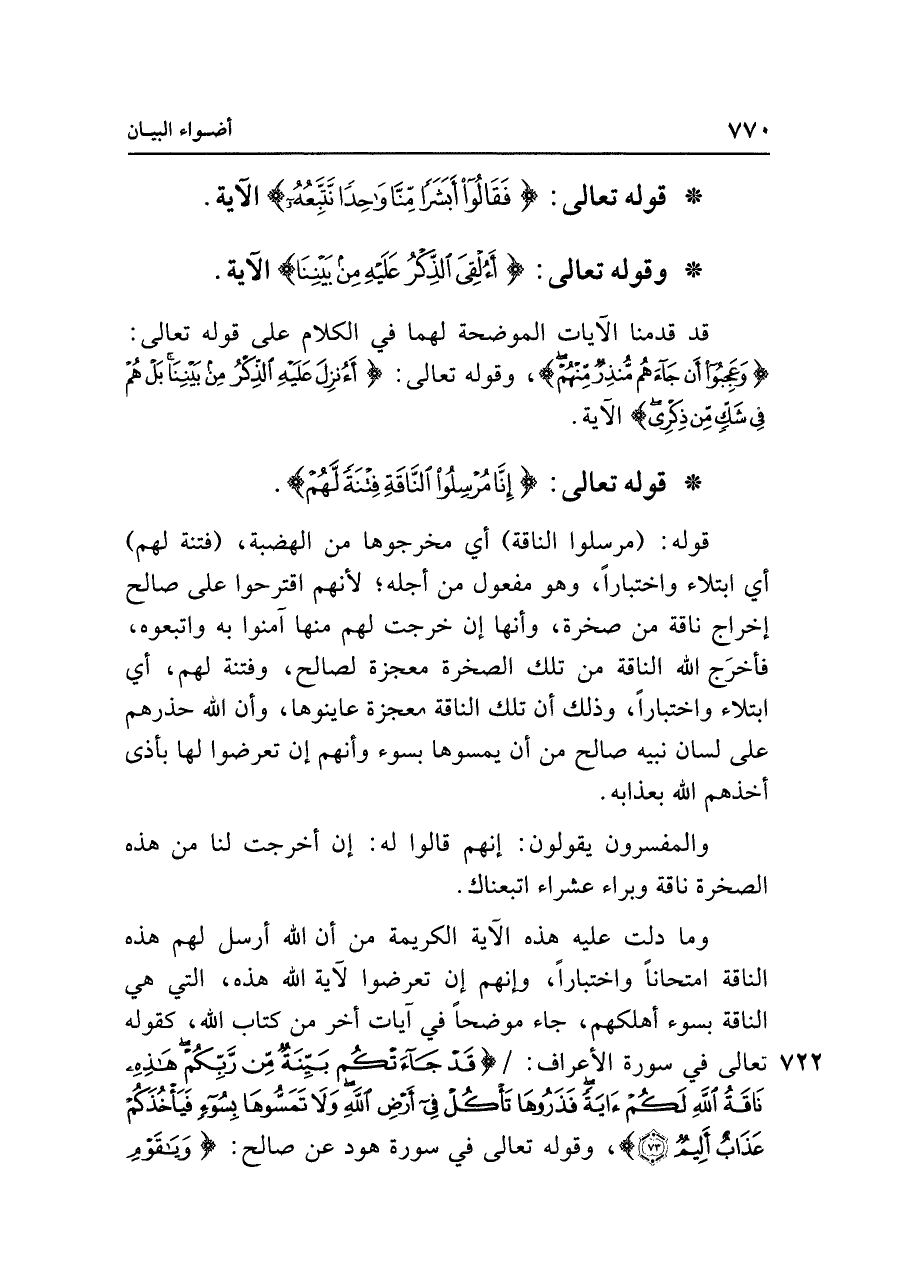 ٧٧٠ أضواء البيان
* قوله تعالى: ﴿ فَقَالُوٓاْ أَبَشَرٗا مِّنَّا وَٰحِدٗا نَّتَّبِعُهُۥٓ ﴾ الآية.
* وقوله تعالى: ﴿ أَءُلۡقِيَ ٱلذِّكۡرُ عَلَيۡهِ مِنۢ بَيۡنِنَا ﴾ الآية.
قد قدمنا الآيات الموضحة لهما في الكلام على قوله تعالى:
﴿ وَعَجِبُوٓاْ أَن جَآءَهُم مُّنذِرٞ مِّنۡهُمۡۖ ﴾، وقوله تعالى: ﴿ أَءُنزِلَ عَلَيۡهِ ٱلذِّكۡرُ مِنۢ بَيۡنِنَاۚ بَلۡ هُمۡ
فِي شَكّٖ مِّن ذِكۡرِيۖ ﴾ الآية.
* قوله تعالى: ﴿ إِنَّا مُرۡسِلُواْ ٱلنَّاقَةِ فِتۡنَةٗ لَّهُمۡ ﴾.
قوله: (مرسلوا الناقة) أي مخرجوها من الهضبة، (فتنة لهم)
أي ابتلاء واختباراً، وهو مفعول من أجله؛ لأنهم اقترحوا على صالح
إخراج ناقة من صخرة، وأنها إن خرجت لهم منها آمنوا به واتبعوه،
فأخرَج الله الناقة من تلك الصخرة معجزة لصالح، وفتنة لهم، أي
ابتلاء واختباراً، وذلك أن تلك الناقة معجزة عاينوها، وأن الله حذرهم
على لسان نبيه صالح من أن يمسوها بسوء وأنهم إن تعرضوا لها بأذى
أخذهم الله بعذابه.
والمفسرون يقولون: إنهم قالوا له: إن أخرجت لنا من هذه
الصخرة ناقة وبراء عشراء اتبعناك.
وما دلت عليه هذه الآية الكريمة من أن الله أرسل لهم هذه
الناقة امتحاناً واختباراً، وإنهم إن تعرضوا لآية الله هذه، التي هي
الناقة بسوء أهلكهم، جاء موضحاً في آيات أخر من كتاب الله، كقوله
٧٢٢ تعالى في سورة الأعراف: / ﴿ قَدۡ جَآءَتۡكُم بَيِّنَةٞ مِّن رَّبِّكُمۡۖ هَٰذِهِۦ
نَاقَةُ ٱللَّهِ لَكُمۡ ءَايَةٗۖ فَذَرُوهَا تَأۡكُلۡ فِيٓ أَرۡضِ ٱللَّهِۖ وَلَا تَمَسُّوهَا بِسُوٓءٖ فَيَأۡخُذَكُمۡ
عَذَابٌ أَلِيمٞ ٧٣ ﴾، وقوله تعالى في سورة هود عن صالح: ﴿ وَيَٰقَوۡمِ